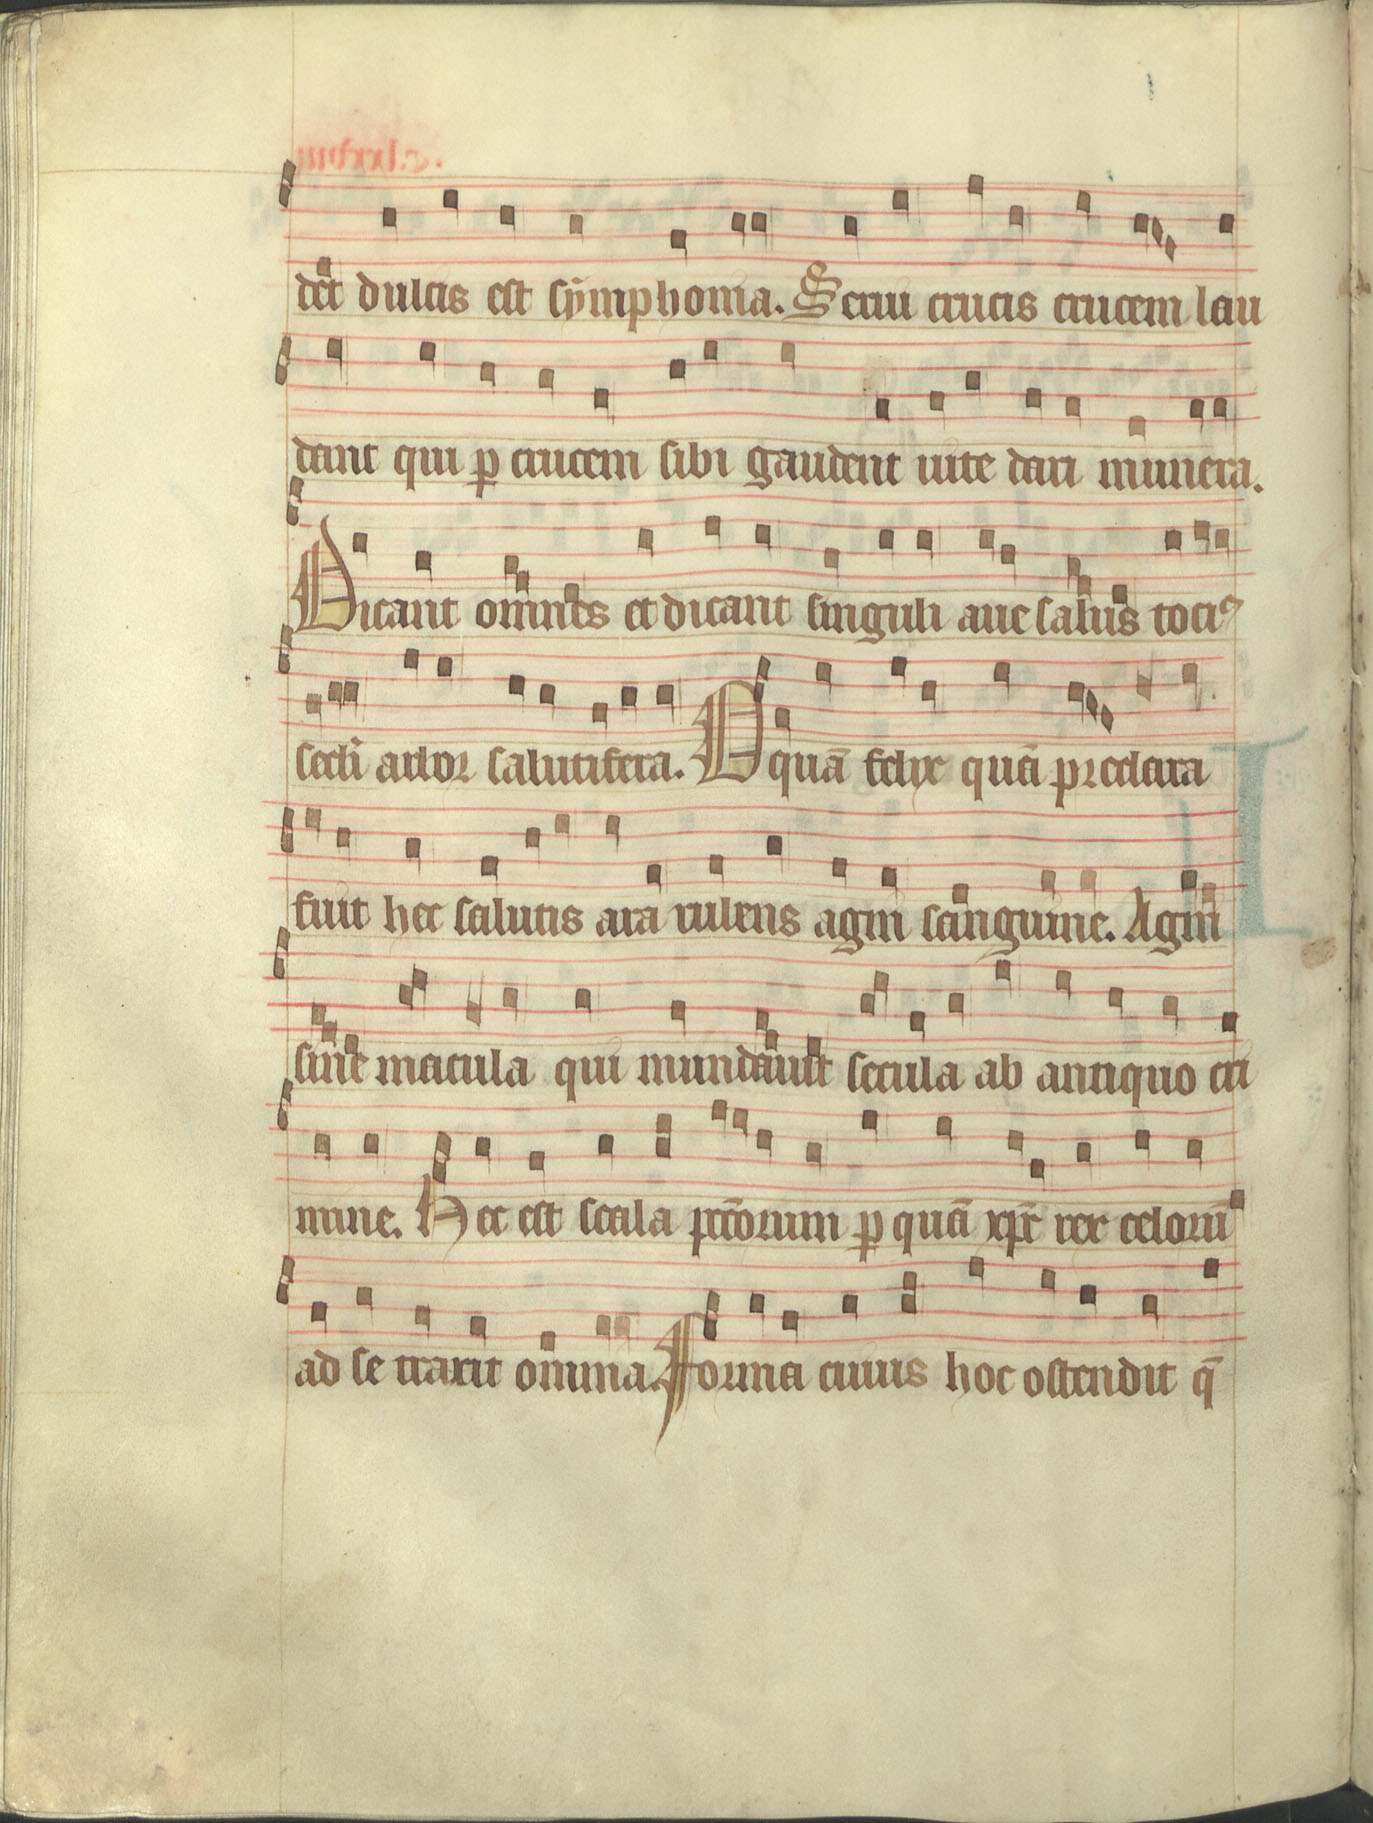 det dulcis est sẏmphonia. Serui crucis crucem lau
dant qui ꝑ crucem sibi gaudent uite dari munera.
Dicant omnes et dicant singuli aue salus tociꝰ
secli arbor salutifera. O quā felix quā preclara
fuit hec salutis ara rubens agni sanguine. Agni
sine macula qui mundauit secula ab antiquo cri
mine. Hec est scala pctōrum ꝑ quā xp̄c rex celorū
ad se traxit omnia. Forma cuius hoc ostendit q̄